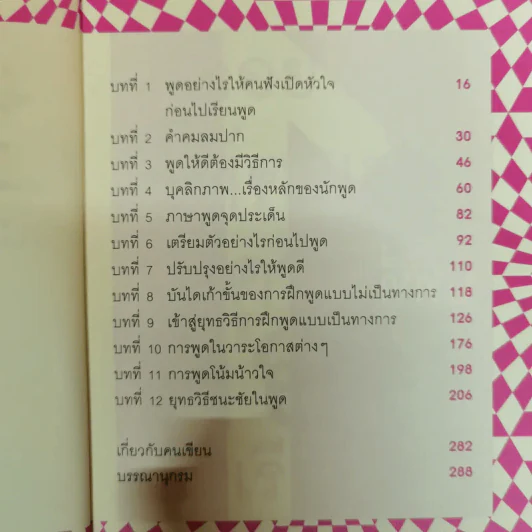 บทที่ 1 พูดอย่างไรให้คนฟังเปิดหัวใจ 16
ก่อนไปเรียนพูด
บทที่ 2 คำคมลมปาก 30
บทที่ 3 พูดให้ดีต้องมีวิธีการ 46
บทที่ 4 บุคลิกภาพ...เรื่องหลักของนักพูด 60
บทที่ 5 ภาษาพูดจุดประเด็น 82
บทที่ 6 เตรียมตัวอย่างไรก่อนไปพูด 92
บทที่ 7 ปรับปรุงอย่างไรให้พูดดี 110
บทที่ 8 บันไดเก้าขั้นของการฝึกพูดแบบไม่เป็นทางการ 118
บทที่ 9 เข้าสู่ยุทธวิธีการฝึกพูดแบบเป็นทางการ 126
บทที่ 10 การพูดในวาระโอกาสต่างๆ 176
บทที่ 11 การพูดโน้มน้าวใจ 198
บทที่ 12 ยุทธวิธีชนะชัยในพูด 206
เกี่ยวกับคนเขียน 282
บรรณานุกรม 288